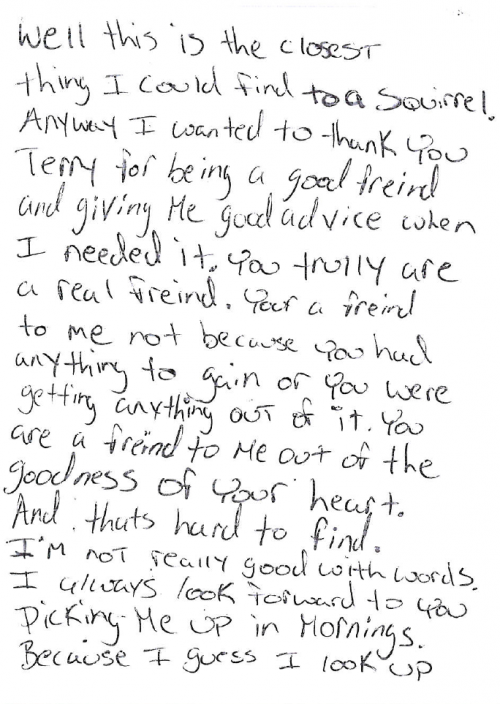 Well this is the closest
thing I could find to a squirrel.
Anyway I wanted to thank you
Terry for being a good freind
and giving me good advice when
I needed it. You trully are
a real freind. Your a freind
to me not because you had
anything to gain or you were
getting anything out of it. You
are a freind to me out of the
goodness of your heart.
And thats hard to find.
I'm not really good with words.
I always look forward to you
picking me up in mornings.
Because I guess I look up